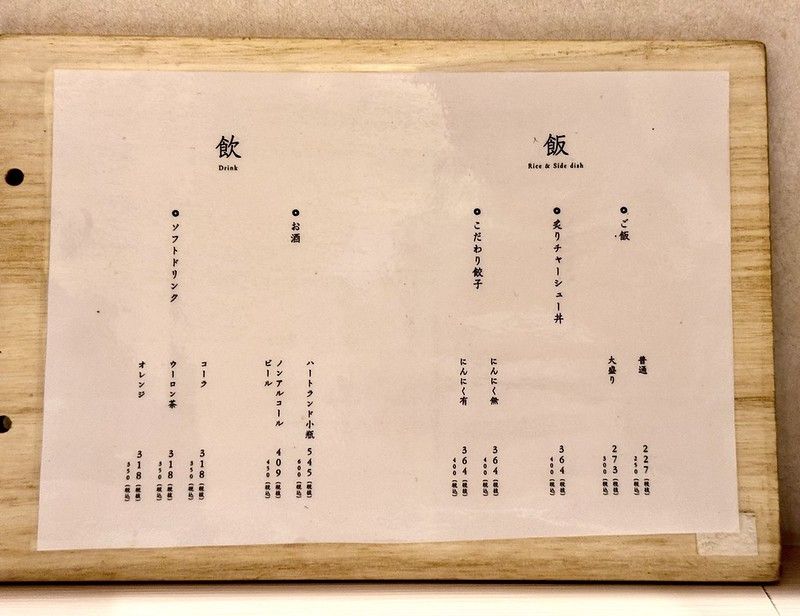 飯
Rice & Side dish
ご飯
普通 227（税抜）
250（税込）
大盛り 273（税抜）
300（税込）
炙りチャーシュー丼
364（税抜）
400（税込）
こだわり餃子
にんにく無 364（税抜）
400（税込）
にんにく有 364（税抜）
400（税込）
飲
Drink
お酒
ハートランド小瓶 545（税抜）
600（税込）
ノンアルコール
ビール
409（税抜）
450（税込）
ソフトドリンク
コーラ 318（税抜）
350（税込）
ウーロン茶 318（税抜）
350（税込）
オレンジ 318（税抜）
350（税込）